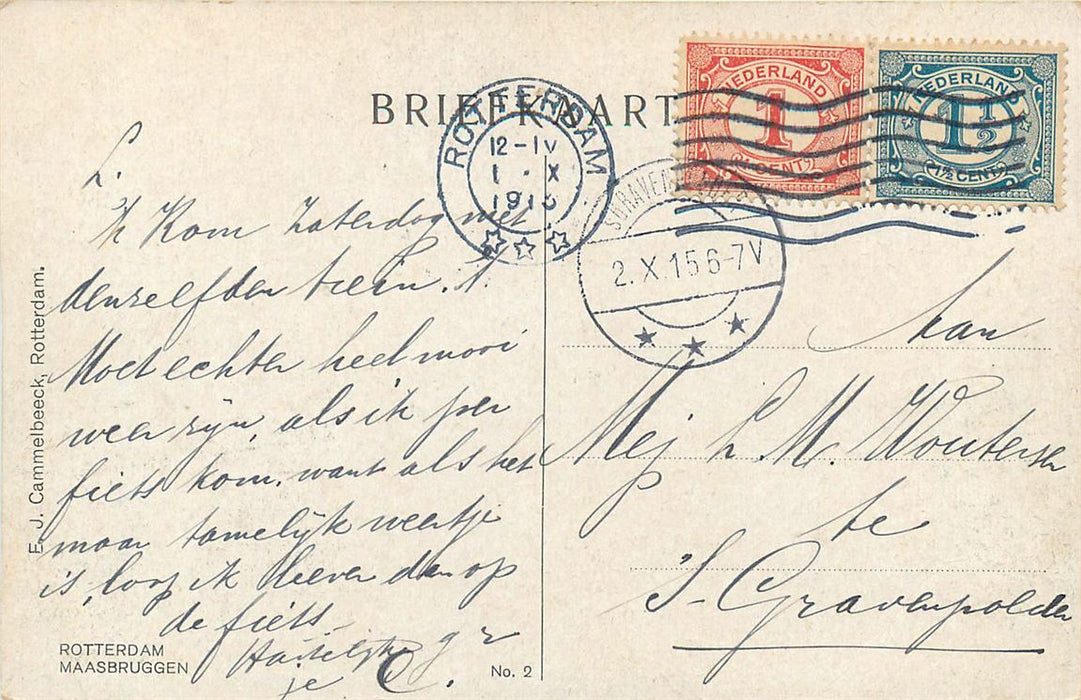 BRIEFKAART
NEDERLAND
1
1 CENT
NEDERLAND
1½
1½ CENT
ROTTERDAM
12-IV
1.X
191
2.X.15 6-7V
L.
Ik Kom Zaterdag met
denzelfden trein.
Moet echter heel mooi
weer zijn, als ik per
fiets kom, want als het
maar tamelijk weertje
is, loop ik liever dan op
de fiets
Hartelijk gr
je C.
Aan
Mej L. M. Woutersen
te
's-Gravenpolder
E. J. Cammelbeeck, Rotterdam.
ROTTERDAM
MAASBRUGGEN
No. 2